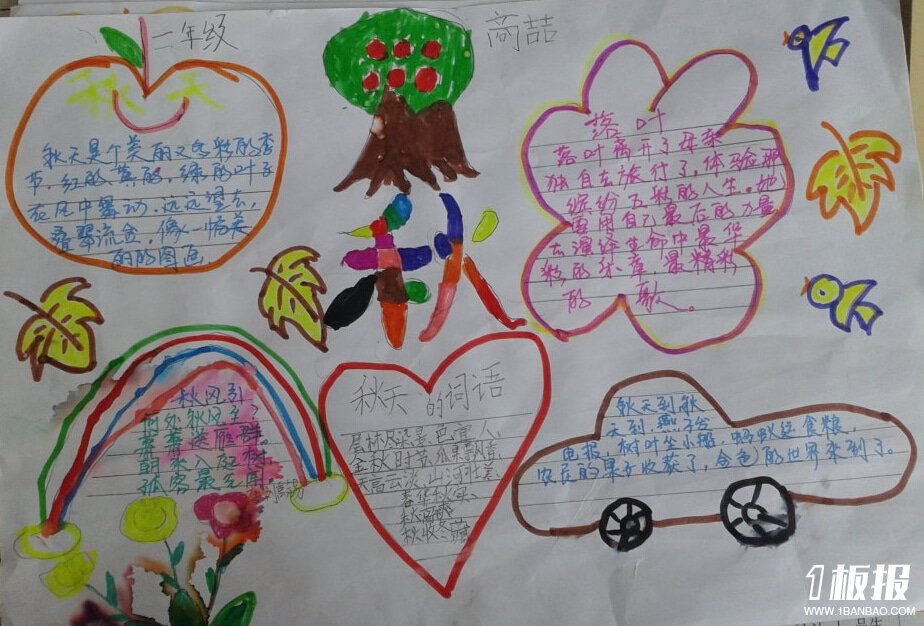 二年级
商喆
秋天
秋天是个美丽又色彩的季
节，红的、黄的，绿的叶子
在风中舞动，远远望去，
叠翠流金，像一幅美
丽的图画
秋
落叶
落叶离开了母亲
独自去旅行了，体验那
缤纷五彩的人生。她
要用自己最后的力量
去演绎生命中最华
彩的乐章，最精彩
的歌。
秋风引
何处秋风至？
萧萧送雁群。
朝来入庭树
孤客最先闻。
刘禹锡
秋天的词语
层林尽染、
金秋时节、瓜果飘香、
天高云淡、山河壮美、
春华秋实、
秋收冬藏
秋天到，秋
天到，燕子发
电报，树叶坐小船，蚂蚁运食粮，
农民的果子收获了，金色的世界来到了。
1板报
WWW.1BANBAO.COM